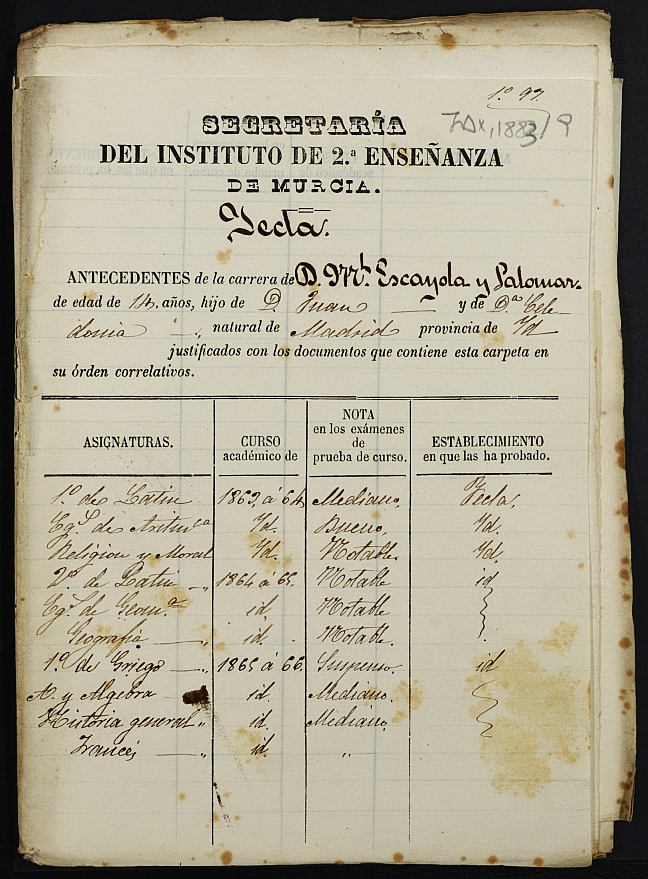 1º 97.
IAX, 1883/9
SECRETARÍA
DEL INSTITUTO DE 2.ª ENSEÑANZA
DE MURCIA.
Yecla.
ANTECEDENTES de la carrera de D. Escayola y Palomar.
de edad de 14. años, hijo de D. Juan — y de D.ª Cele-
donia — , natural de Madrid provincia de Id
justificados con los documentos que contiene esta carpeta en
su órden correlativos.
ASIGNATURAS. CURSO académico de NOTA en los exámenes de prueba de curso. ESTABLECIMIENTO en que las ha probado.
1º de Latin 1863, á 64, Mediano, Yecla,
Eg.s de Aritm.ca Id. Bueno, Id.
Religion y Moral Id. Notable. Id.
2º de Latin „ 1864 á 65. Notable id
Eg.s de Geom.a id. Notable
Geografia — „ id. Notable.
1º de Griego — „ 1865 á 66. Suspenso. id
A. y Algebra id. Mediano.
Historia general „ id. Mediano,
Francés — „ id. „